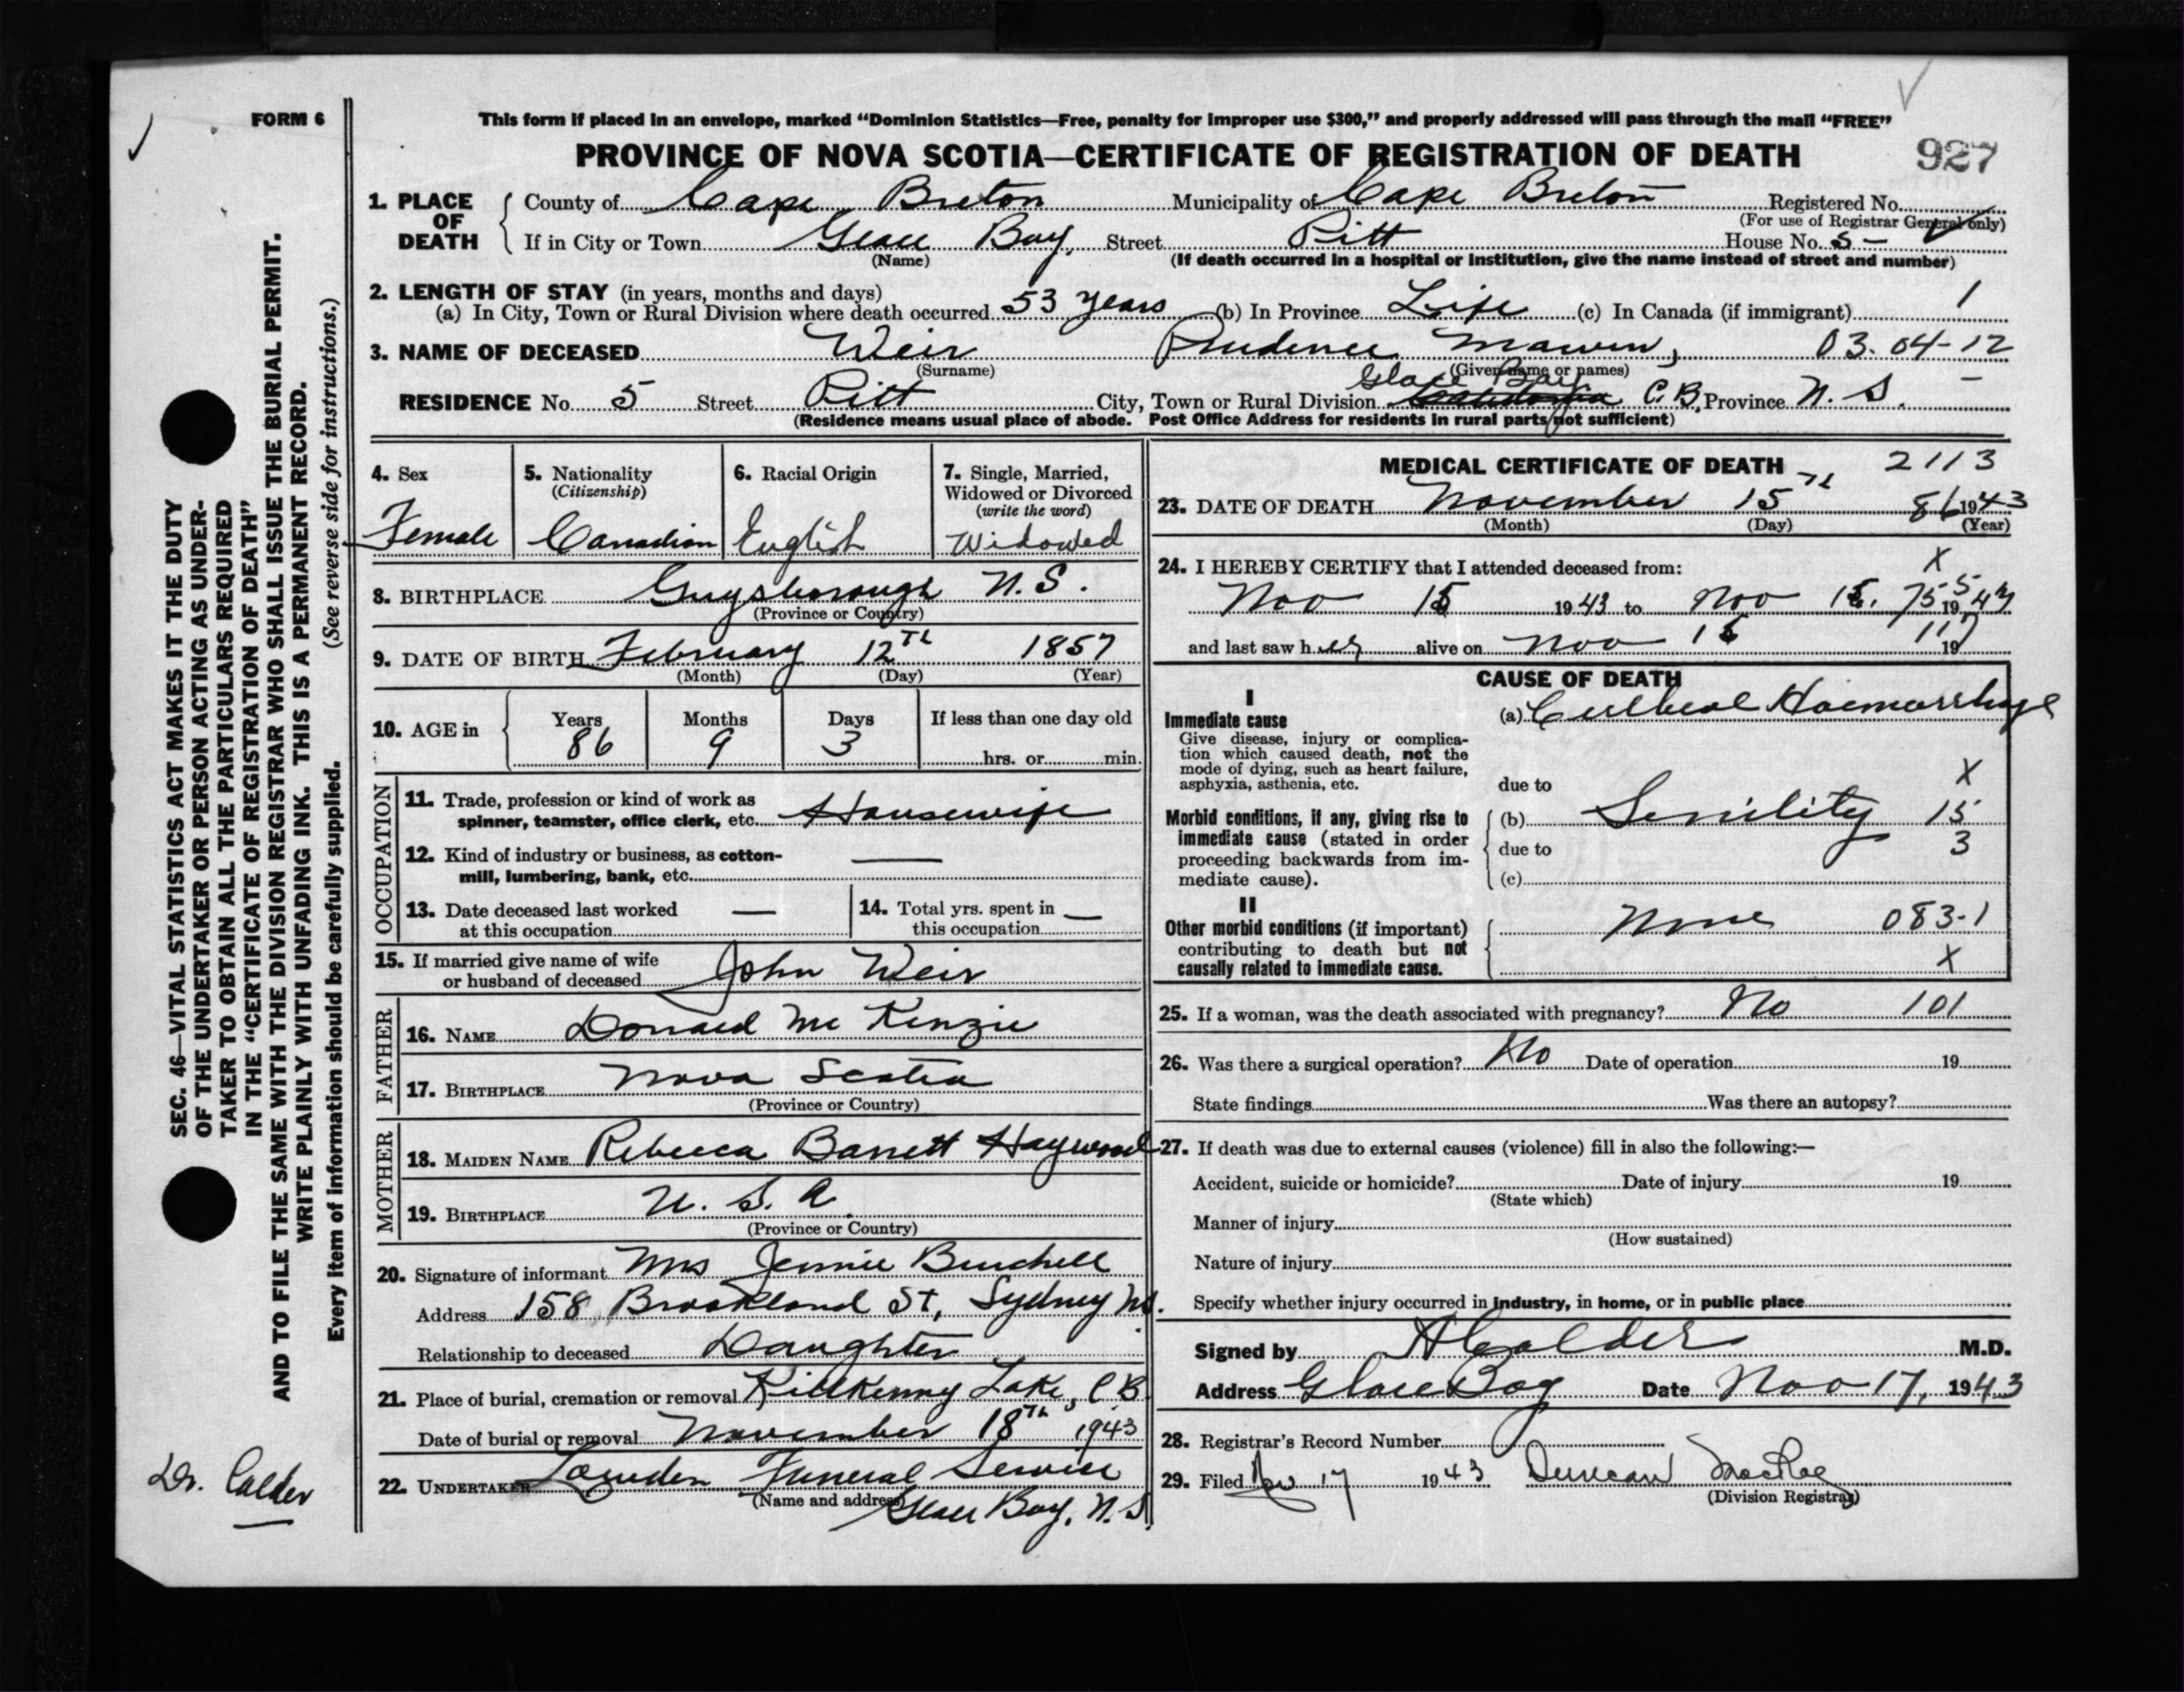 FORM 6
This form if placed in an envelope, marked “Dominion Statistics—Free, penalty for improper use $300,” and properly addressed will pass through the mail “FREE”
PROVINCE OF NOVA SCOTIA—CERTIFICATE OF REGISTRATION OF DEATH
927
1. PLACE OF DEATH
County of Cape Breton Municipality of Cape Breton Registered No.
(For use of Registrar General only)
If in City or Town Glace Bay, Street Pitt House No. 5 -
(Name) (If death occurred in a hospital or institution, give the name instead of street and number)
2. LENGTH OF STAY (in years, months and days)
(a) In City, Town or Rural Division where death occurred 53 years (b) In Province Life (c) In Canada (if immigrant) 1
3. NAME OF DECEASED Weir Prudence 03.04-12
(Surname) (Given name or names)
Glace Bay
RESIDENCE No. 5 Street Pitt City, Town or Rural Division Caledonia C.B. Province N. S.
(Residence means usual place of abode. Post Office Address for residents in rural parts not sufficient)
4. Sex
Female
5. Nationality
(Citizenship)
Canadian
6. Racial Origin
English
7. Single, Married, Widowed or Divorced
(write the word)
Widowed
8. BIRTHPLACE Guysborough N.S.
(Province or Country)
9. DATE OF BIRTH February 12th 1857
(Month) (Day) (Year)
10. AGE in Years 86 Months 9 Days 3 If less than one day old
hrs. or min.
OCCUPATION
11. Trade, profession or kind of work as
spinner, teamster, office clerk, etc. Housewife
12. Kind of industry or business, as cotton-
mill, lumbering, bank, etc. —
13. Date deceased last worked
at this occupation —
14. Total yrs. spent in
this occupation —
15. If married give name of wife
or husband of deceased John Weir
FATHER
16. NAME Donald Mc Kinzie
17. BIRTHPLACE Nova Scotia
(Province or Country)
MOTHER
18. MAIDEN NAME Rebecca Barrett Haywood
19. BIRTHPLACE U. S. A.
(Province or Country)
20. Signature of informant Mrs Jennie Burchell
Address 158 Brookland St, Sydney NS.
Relationship to deceased Daughter
21. Place of burial, cremation or removal Killkenny Lake, C B
Date of burial or removal November 18th 1943
22. UNDERTAKER Lowden Funeral Service
(Name and address) Glace Bay, N.S.
MEDICAL CERTIFICATE OF DEATH 2113
23. DATE OF DEATH November 15th 86 1943
(Month) (Day) (Year)
24. I HEREBY CERTIFY that I attended deceased from: X
Nov 15 1943 to Nov 15, 1943
and last saw her alive on Nov 15 19
CAUSE OF DEATH
I
Immediate cause
Give disease, injury or complica-
tion which caused death, not the
mode of dying, such as heart failure,
asphyxia, asthenia, etc.
(a) Cerebral Haemorrhage
due to X
Morbid conditions, if any, giving rise to
immediate cause (stated in order
proceeding backwards from im-
mediate cause).
(b) Senility 15
due to 3
(c)
II
Other morbid conditions (if important)
contributing to death but not
causally related to immediate cause.
None 083-1
X
25. If a woman, was the death associated with pregnancy? No 101
26. Was there a surgical operation? No Date of operation 19
State findings Was there an autopsy?
27. If death was due to external causes (violence) fill in also the following:—
Accident, suicide or homicide? Date of injury 19
(State which)
Manner of injury
(How sustained)
Nature of injury
Specify whether injury occurred in industry, in home, or in public place
Signed by A Calder M.D.
Address Glace Bay Date Nov 17, 1943
28. Registrar's Record Number
29. Filed Nov 17 1943 Duncan MacRae
(Division Registrar)
SEC. 46—VITAL STATISTICS ACT MAKES IT THE DUTY
OF THE UNDERTAKER OR PERSON ACTING AS UNDER-
TAKER TO OBTAIN ALL THE PARTICULARS REQUIRED
IN THE “CERTIFICATE OF REGISTRATION OF DEATH”
AND TO FILE THE SAME WITH THE DIVISION REGISTRAR WHO SHALL ISSUE THE BURIAL PERMIT.
WRITE PLAINLY WITH UNFADING INK. THIS IS A PERMANENT RECORD.
Every item of information should be carefully supplied. (See reverse side for instructions.)
Dr. Calder